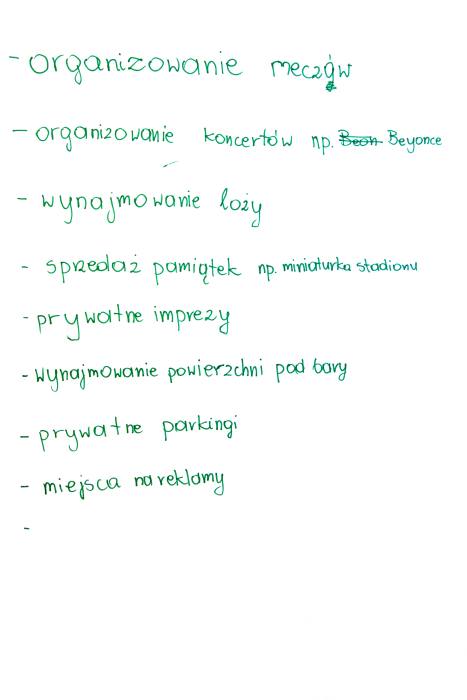 - organizowanie meczów
- organizowanie koncertów np. Beon Beyonce
- wynajmowanie loży
- sprzedaż pamiątek np. miniaturka stadionu
- prywatne imprezy
- wynajmowanie powierzchni pod bary
- prywatne parkingi
- miejsca na reklamy
-